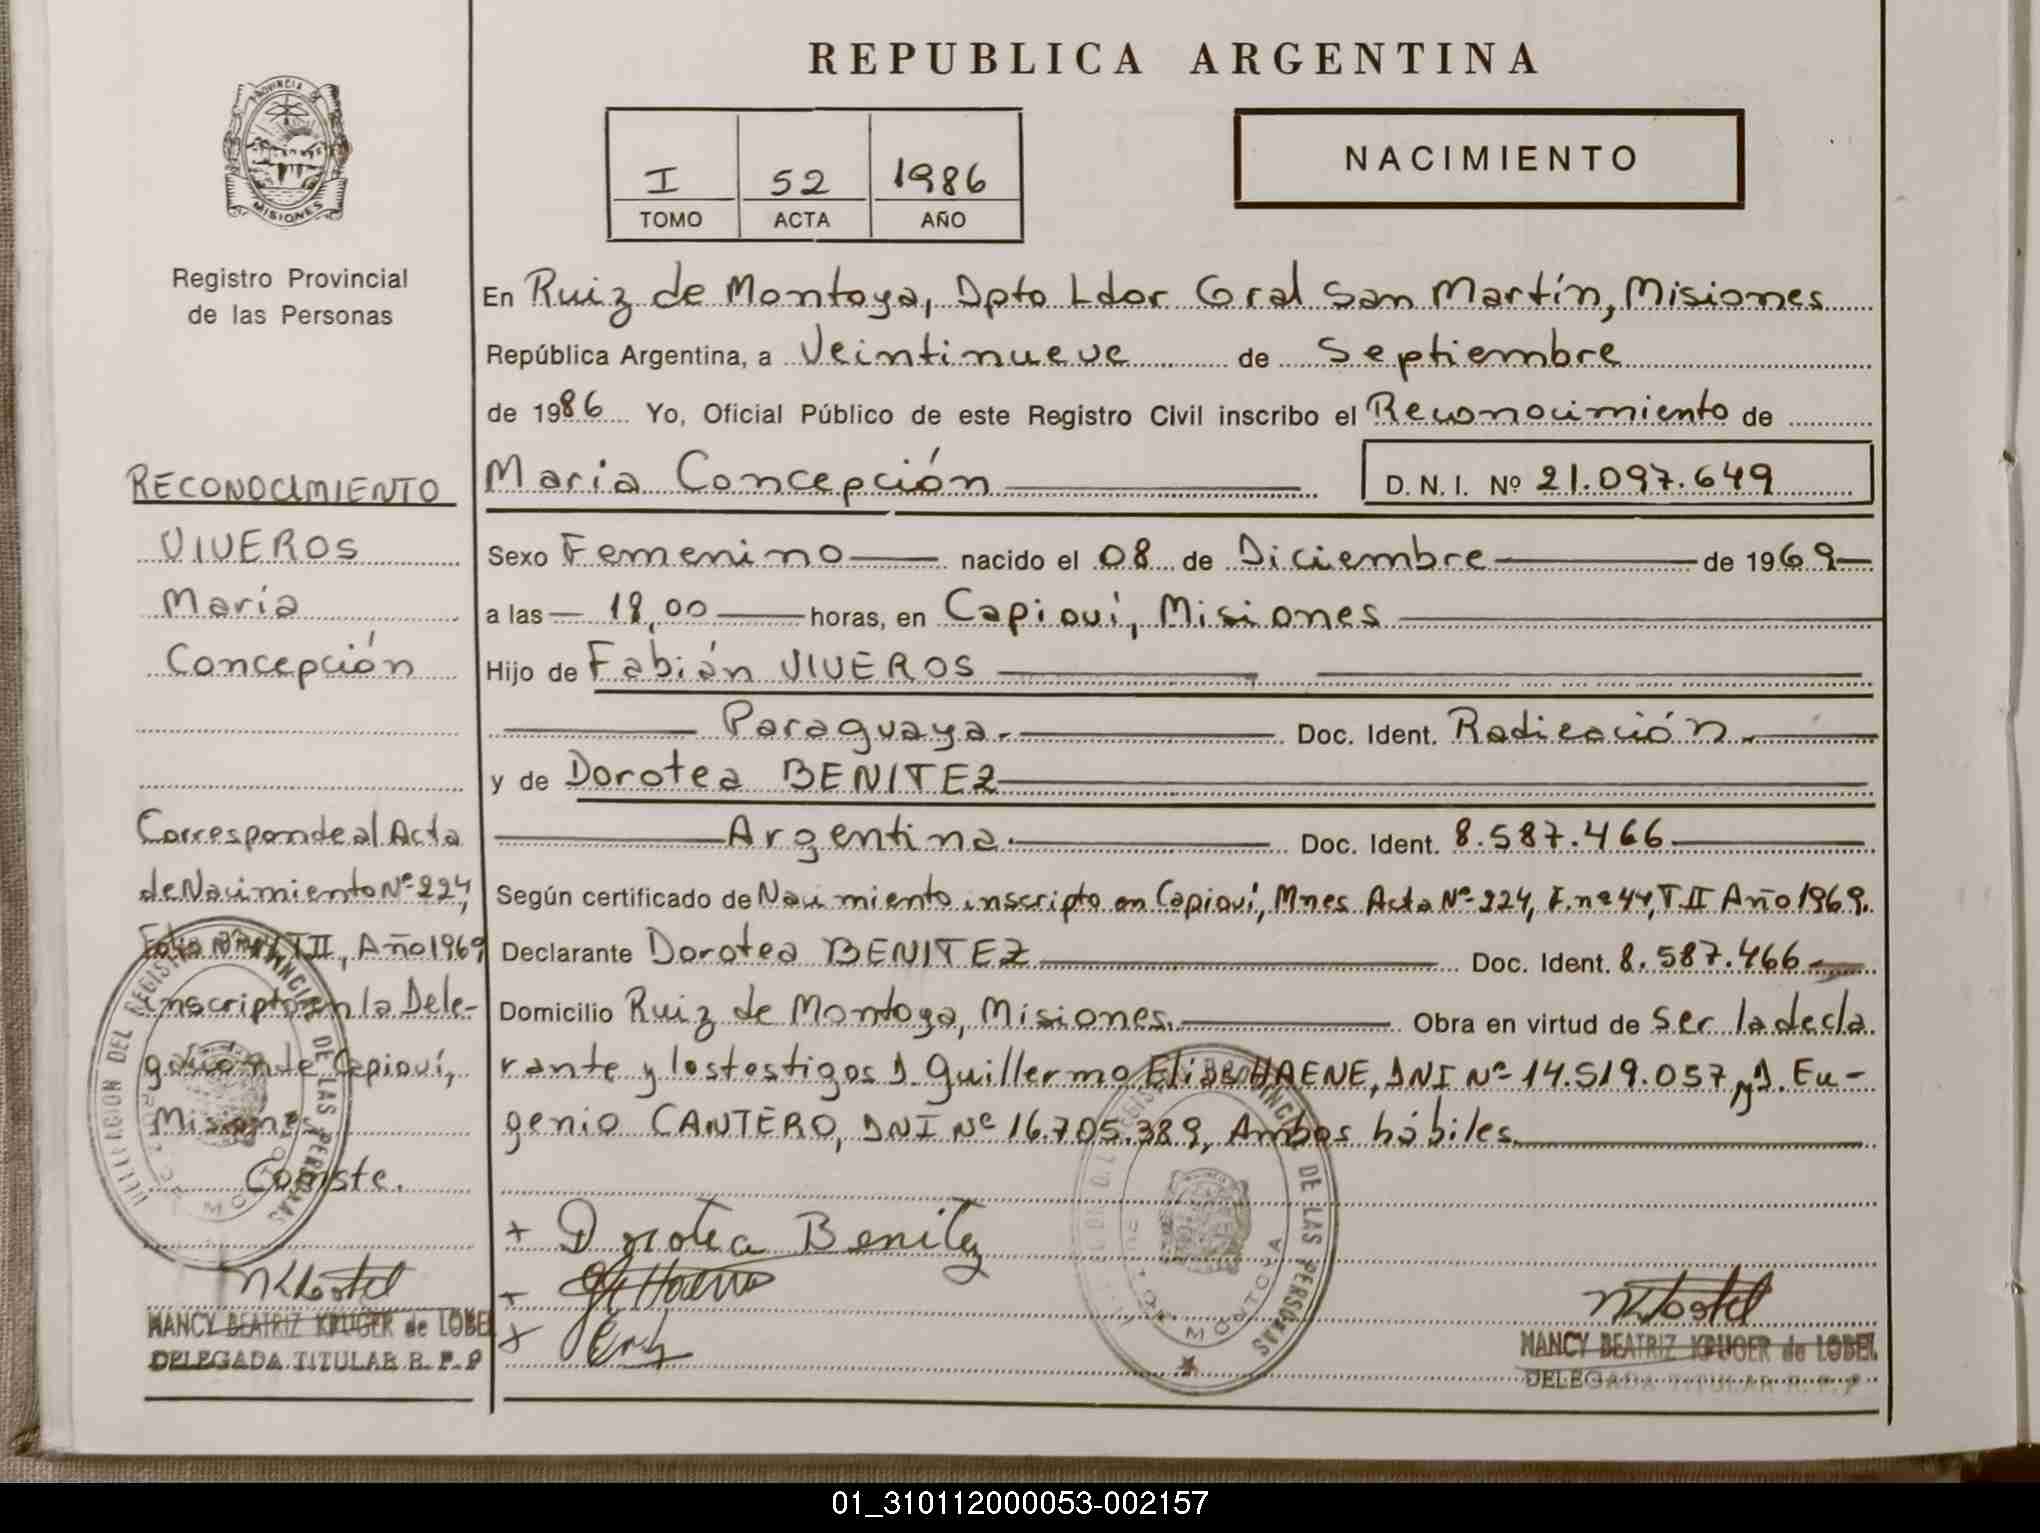 REPUBLICA ARGENTINA
PROVINCIA DE
MISIONES
Registro Provincial
de las Personas
I 52 1986
TOMO ACTA AÑO
NACIMIENTO
En Ruiz de Montoya, Dpto Ldor Gral San Martín, Misiones
República Argentina, a Veintinueve de Septiembre
de 1986 Yo, Oficial Público de este Registro Civil inscribo el Reconocimiento de
Maria Concepción D. N. I. Nº 21.097.649
Sexo Femenino nacido el 08 de Diciembre de 1969
a las 18,00 horas, en Capioví, Misiones
Hijo de Fabián VIVEROS
Paraguaya. Doc. Ident. Radicación.
y de Dorotea BENITEZ
Argentina. Doc. Ident. 8.587.466
Según certificado de Nacimiento inscripto en Capioví, Mnes Acta Nº 224, F. nº 44, T. II Año 1969.
Declarante Dorotea BENITEZ Doc. Ident. 8.587.466
Domicilio Ruiz de Montoya, Misiones. Obra en virtud de Ser la decla
rante y los testigos D. Guillermo HAENE, DNI Nº 14.519.057 y D. Eu-
genio CANTERO, DNI Nº 16.705.389, Ambos hábiles
+ Dorotea Benitez
RECONOCIMIENTO
VIVEROS
María
Concepción
Corresponde al Acta
de Nacimiento Nº 224,
Folio Nº 44, T II, Año 1969
inscripto en la Dele-
gación de Capioví,
Misiones
Conste.
DELEGACION DEL REGISTRO PROVINCIAL DE LAS PERSONAS
RUIZ DE MONTOYA
NANCY BEATRIZ KRUGER de LOBE
DELEGADA TITULAR R. P. P
DE LAS PERSONAS
DE MONTOYA
NANCY BEATRIZ KRUGER de LOBEL
DELEGADA TITULAR R. P. P
01_310112000053-002157